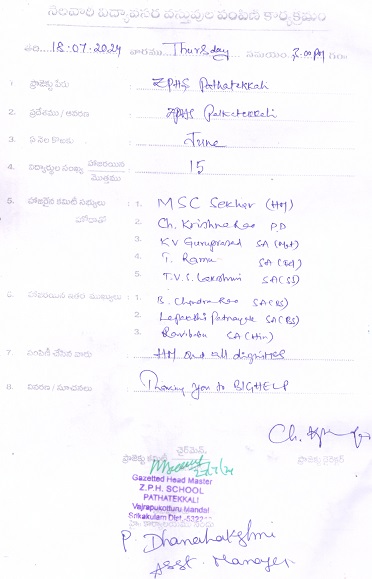 నెలవారి విద్యావసర వస్తువుల పంపిణి కార్యక్రమం
తేది 18-07-2024 వారము Thursday సమయం 3.00 PM గం॥
1. ప్రాజెక్టు పేరు : ZPHS Pathatekkali
2. ప్రదేశము / ఆవరణ : ZPHS Pathatekkali
3. ఏ నెల కొఱకు : June
4. విద్యార్థుల సంఖ్య హాజరయిన / మొత్తము : 15
5. హాజరైన కమిటీ సభ్యులు : 1. MSC Sekhar (HM)
హోదాతో 2. Ch. Krishna Rao P.D
3. KV Guruprasad SA (Mat)
4. T. Ramu SA
5. T.V.S. Lakshmi SA (SS)
6. హాజరయిన ఇతర ముఖ్యులు : 1. B. Chandra Rao SA (BS)
2. Patnayak SA (PS)
3. Ravibabu SA (Hin)
7. పంపిణీ చేసిన వారు : HM and all dignities
8. వివరణ / సూచనలు : Thanking you to BIGHELP
Ch.
ఛైర్మెన్,
ప్రాజెక్టు కమిటీ ప్రాజెక్టు డైరెక్టర్
Gazetted Head Master
Z.P.H. SCHOOL
PATHATEKKALI
Vajrapukotturu Mandal
Srikakulam Dist.-532
P. Dhanalakshmi
Asst. Manager